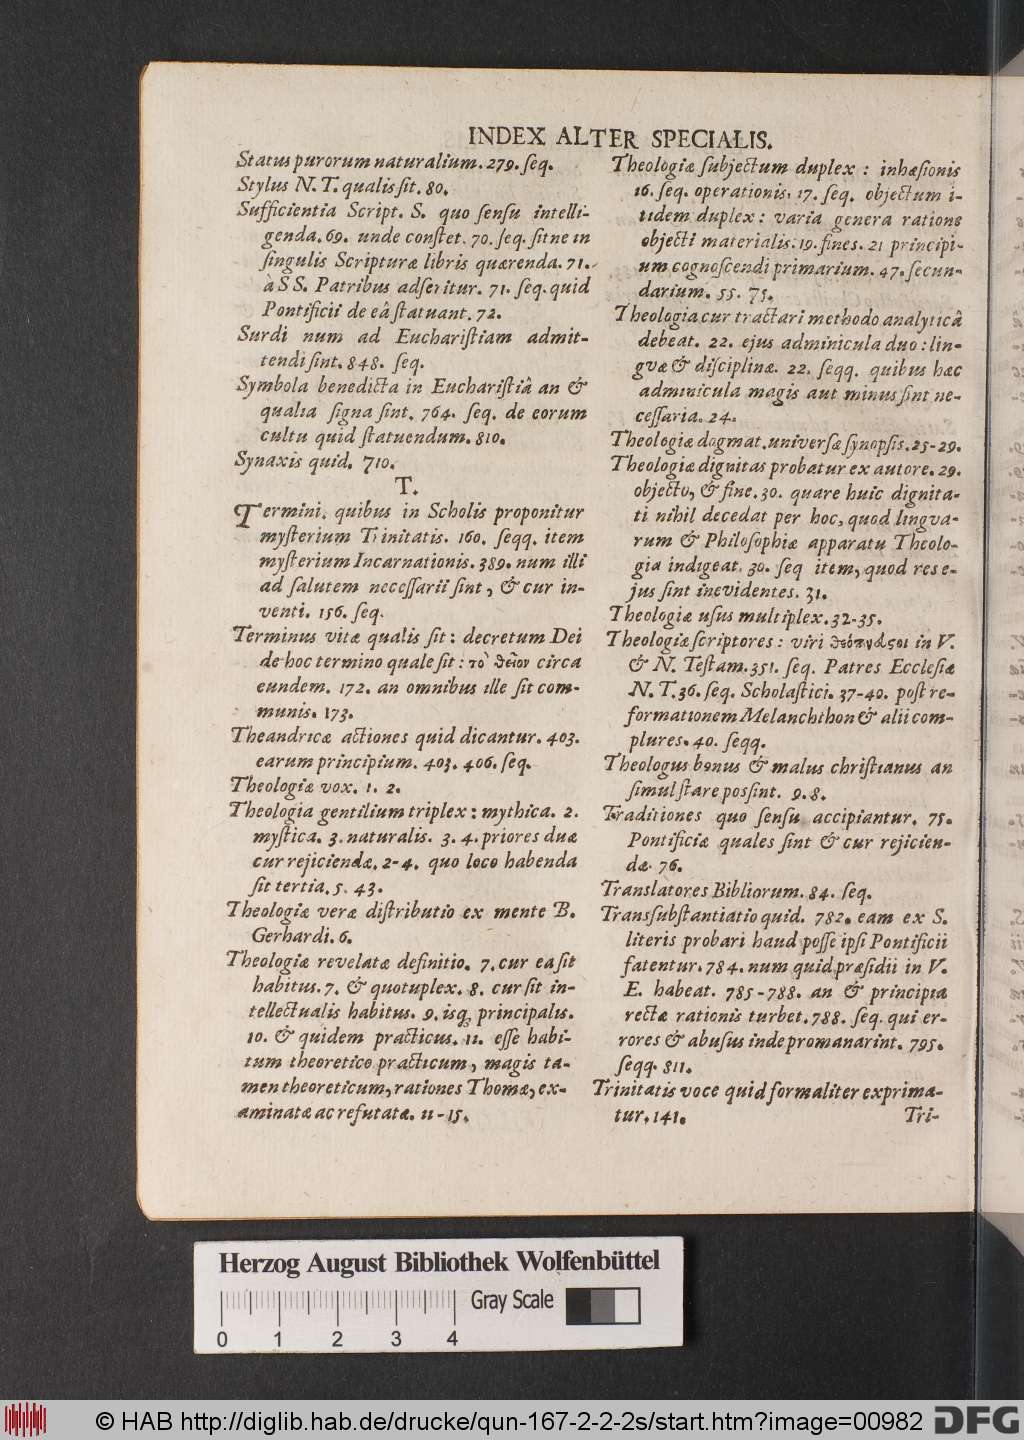 INDEX ALTER SPECIALIS.
Status purorum naturalium. 279. seq.
Stylus N. T. qualis sit. 80.
Sufficientia Script. S. quo sensu intelli-
genda. 69. unde constet. 70. seq. sitne in
singulis Scripturæ libris quærenda. 71.
à SS. Patribus adseritur. 71. seq. quid
Pontificii de eâ statuant. 72.
Surdi num ad Eucharistiam admit-
tendi sint. 848. seq.
Symbola benedicta in Eucharistiâ an &
qualia signa sint. 764. seq. de eorum
cultu quid statuendum. 810.
Synaxis quid. 710.
T.
Termini, quibus in Scholis proponitur
mysterium Trinitatis. 160. seqq. item
mysterium Incarnationis. 389. num illi
ad salutem necessarii sint, & cur in-
venti. 156. seq.
Terminus vitæ qualis sit: decretum Dei
de hoc termino quale sit: τὸ θεῖον circa
eundem. 172. an omnibus ille sit com-
munis. 173.
Theandricæ actiones quid dicantur. 403.
earum principium. 403. 406. seq.
Theologiæ vox. 1. 2.
Theologia gentilium triplex: mythica. 2.
mystica. 3. naturalis. 3. 4. priores duæ
cur rejiciendæ. 2-4. quo loco habenda
sit tertia. 5. 43.
Theologiæ veræ distributio ex mente B.
Gerhardi. 6.
Theologiæ revelatæ definitio. 7. cur ea sit
habitus. 7. & quotuplex. 8. cur sit in-
tellectualis habitus. 9. isq; principalis.
10. & quidem practicus. 11. esse habi-
tum theoretico practicum, magis ta-
men theoreticum, rationes Thomæ, ex-
aminatæ ac refutatæ. 11-15.
Theologiæ subjectum duplex: inhæsionis
16. seq. operationis. 17. seq. objectum i-
tidem duplex: varia genera ratione
objecti materialis. 19. fines. 21 principi-
um cognoscendi primarium. 47. secun-
darium. 55. 75.
Theologia cur tractari methodo analyticâ
debeat. 22. ejus adminicula duo: lin-
gvæ & disciplinæ. 22. seqq. quibus hæc
adminicula magis aut minus sint ne-
cessaria. 24.
Theologiæ dogmat. universæ synopsis. 25-29.
Theologiæ dignitas probatur ex autore. 29.
objecto, & fine. 30. quare huic dignita-
ti nihil decedat per hoc, quod lingva-
rum & Philosophiæ apparatu Theolo-
gia indigeat. 30. seq item, quod res e-
jus sint inevidentes. 31.
Theologiæ usus multiplex. 32-35.
Theologiæ scriptores: viri θεόπνευςοι in V.
& N. Testam. 351. seq. Patres Ecclesiæ
N. T. 36. seq. Scholastici. 37-40. post re-
formationem Melanchthon & alii com-
plures. 40. seqq.
Theologus bonus & malus christianus an
simul stare possint. 9. 8.
Traditiones quo sensu accipiantur. 75.
Pontificiæ quales sint & cur rejicien-
dæ. 76.
Translatores Bibliorum. 84. seq.
Transsubstantiatio quid. 782. eam ex S.
literis probari haud posse ipsi Pontificii
fatentur. 784. num quid præsidii in V.
E. habeat. 785-788. an & principia
rectæ rationis turbet. 788. seq. qui er-
rores & abusus inde promanarint. 795.
seqq. 811.
Trinitatis voce quid formaliter exprima-
tur. 141.
Tri-
Herzog August Bibliothek Wolfenbüttel
Gray Scale
0 1 2 3 4
© HAB http://diglib.hab.de/drucke/qun-167-2-2-2s/start.htm?image=00982
DFG